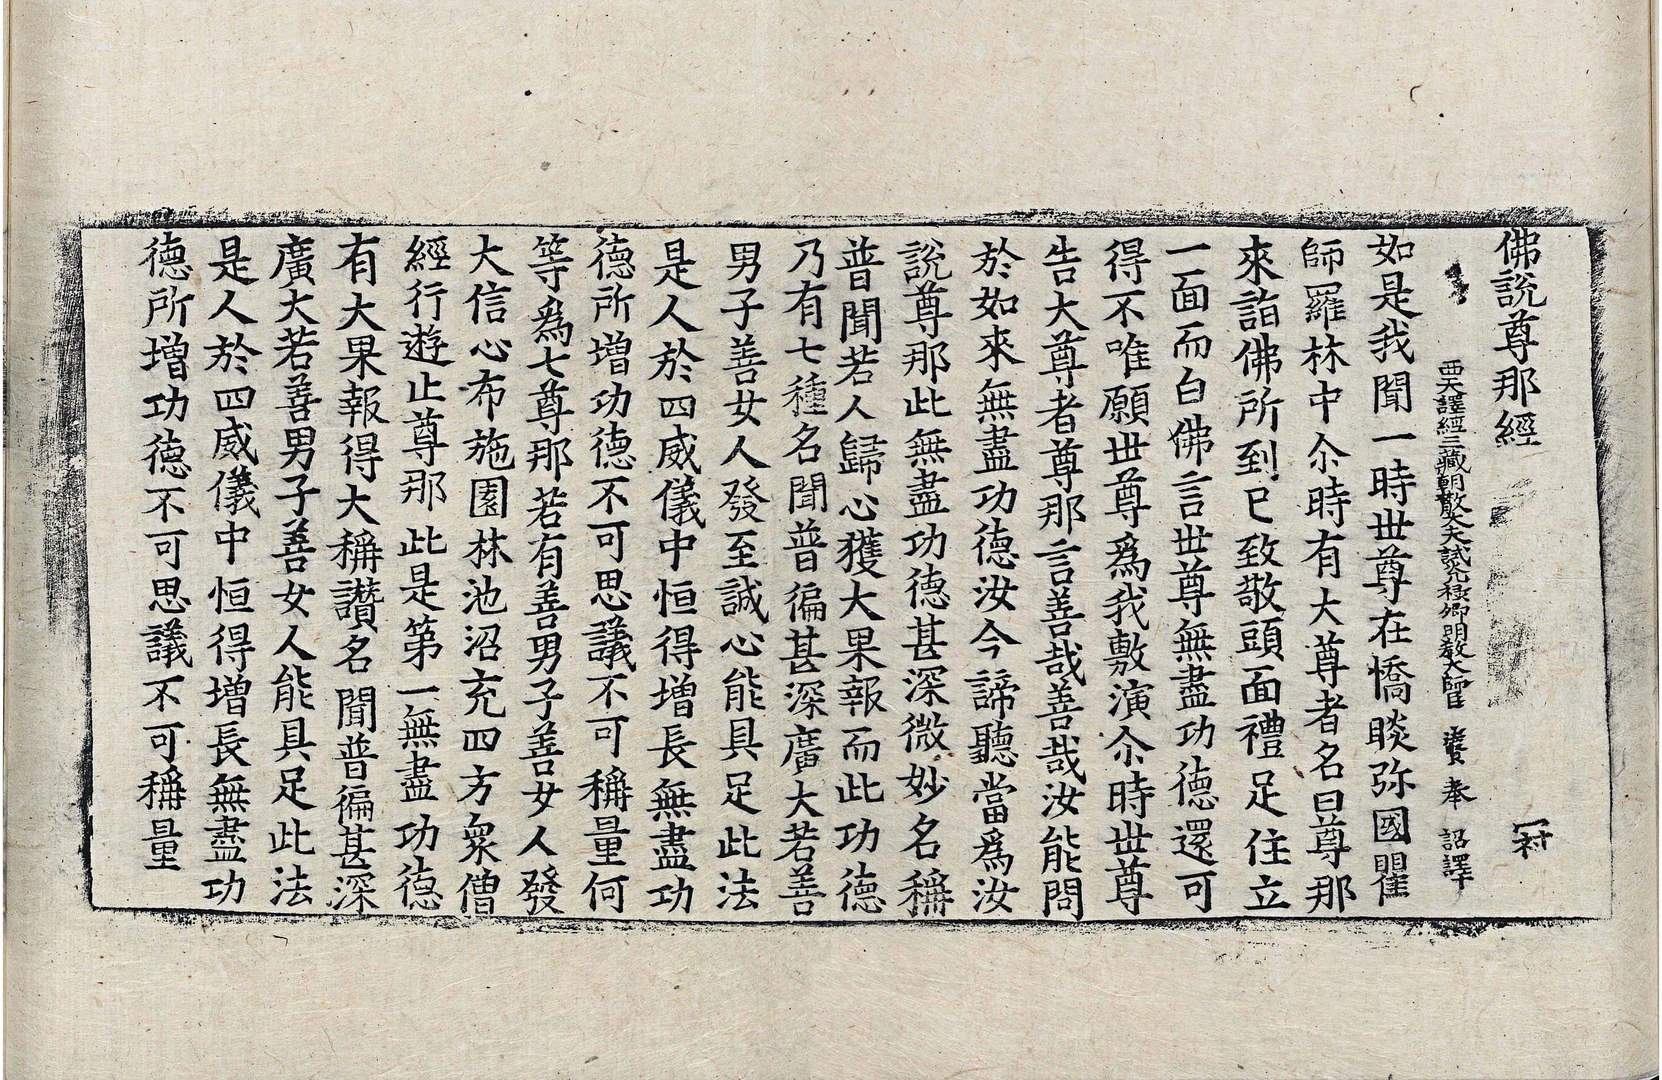 佛說尊那經
西天譯經三藏朝散大夫試光祿卿明教大師臣 法賢奉 詔譯
如是我聞一時世尊在憍睒弥國瞿
師羅林中尒時有大尊者名曰尊那
來詣佛所到已致敬頭面禮足住立
一面而白佛言世尊無盡功德還可
得不唯願世尊爲我敷演尒時世尊
告大尊者尊那言善哉善哉汝能問
於如來無盡功德汝今諦聽當爲汝
說尊那此無盡功德甚深微妙名稱
普聞若人歸心獲大果報而此功德
乃有七種名聞普徧甚深廣大若善
男子善女人發至誠心能具足此法
是人於四威儀中恒得增長無盡功
德所增功德不可思議不可稱量何
等爲七尊那若有善男子善女人發
大信心布施園林池沼充四方衆僧
經行遊止尊那此是第一無盡功德
有大果報得大稱讚名聞普徧甚深
廣大若善男子善女人能具足此法
是人於四威儀中恒得增長無盡功
德所增功德不可思議不可稱量